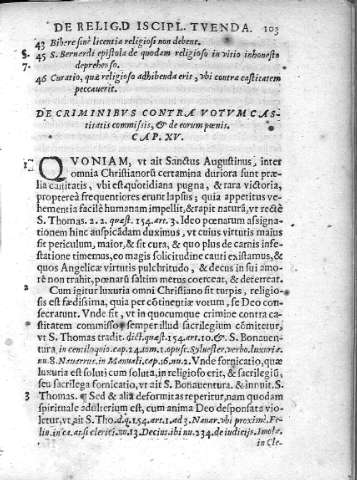 DE RELIG.D ISCIPL. TVENDA. 103
43 Bibere sine licentia religiosi non debent.
S. 45 S. Bernardi epistola de quodam religioso in vitio inhonesto
7. deprehenso.
46 Curatio, quæ religioso adhibenda erit, vbi contra castitatem
peccauerit.
DE CRIMINIBVS CONTRA VOTVM CAS-
titatis commissis, & de eorum pœnis.
CAP. XV.
1 QVONIAM, vt ait Sanctus Augustinus, inter
omnia Christianorũ certamina duriora sunt præ-
lia castitatis, vbi est quotidiana pugna, & rara victoria,
proptereà frequentiores erunt lapsus; quia appetitus ve-
hementia facilè humanam impellit, & rapit naturã, vt rectè
S. Thomas. 2. 2. quæst. 154. art. 3. Ideo pœnarum assigna-
tionem hinc auspicãdam duximus, vt cuius virtutis maius
sit periculum, maior, & sit cura, & quo plus de carnis infe-
statione timemus, eo magis solicitudine cauti existamus, &
quos Angelicæ virtutis pulchritudo, & decus in sui amo-
rẽ non trahit, pœnarũ saltim metus coerceat, & deterreat.
2 Cum igitur luxuria omni Christiano sit turpis, religio-
sis est fœdissima, quia per cõtinẽtiæ votum, se Deo con-
secrarunt. Vnde fit, vt in quocumque crimine contra ca-
stitatem commisso semper illud sacrilegium cõmitetur,
vt S. Thomas tradit. dict. quæst. 154. art. 10. & S. Bonauen-
tura. in centiloquio. cap. 24. tom. 1. opusc. Syluester. verbo. luxuria.
nu. 8. Nauarrus, in Manuali, cap. 16. nu. 1. Vnde fornicatio, quæ
luxuria est soluti cum soluta, in religioso erit, & sacrilegiũ,
seu sacrilega fornicatio, vt ait S. Bonauentura. & innuit. S.
3 Thomas. ¶ Sed & alia deformitas reperitur, nam quodam
spirituale adulterium est, cum anima Deo desponsata vio-
letur, vt ait S. Tho. d. q. 154. art. 1. ad 3. Nauar. vbi proximè. Fe-
lin. in ce. at si clerici. nu. 13. Decius. ibi nu. 234. de iudicijs. Imola.
in Cle-